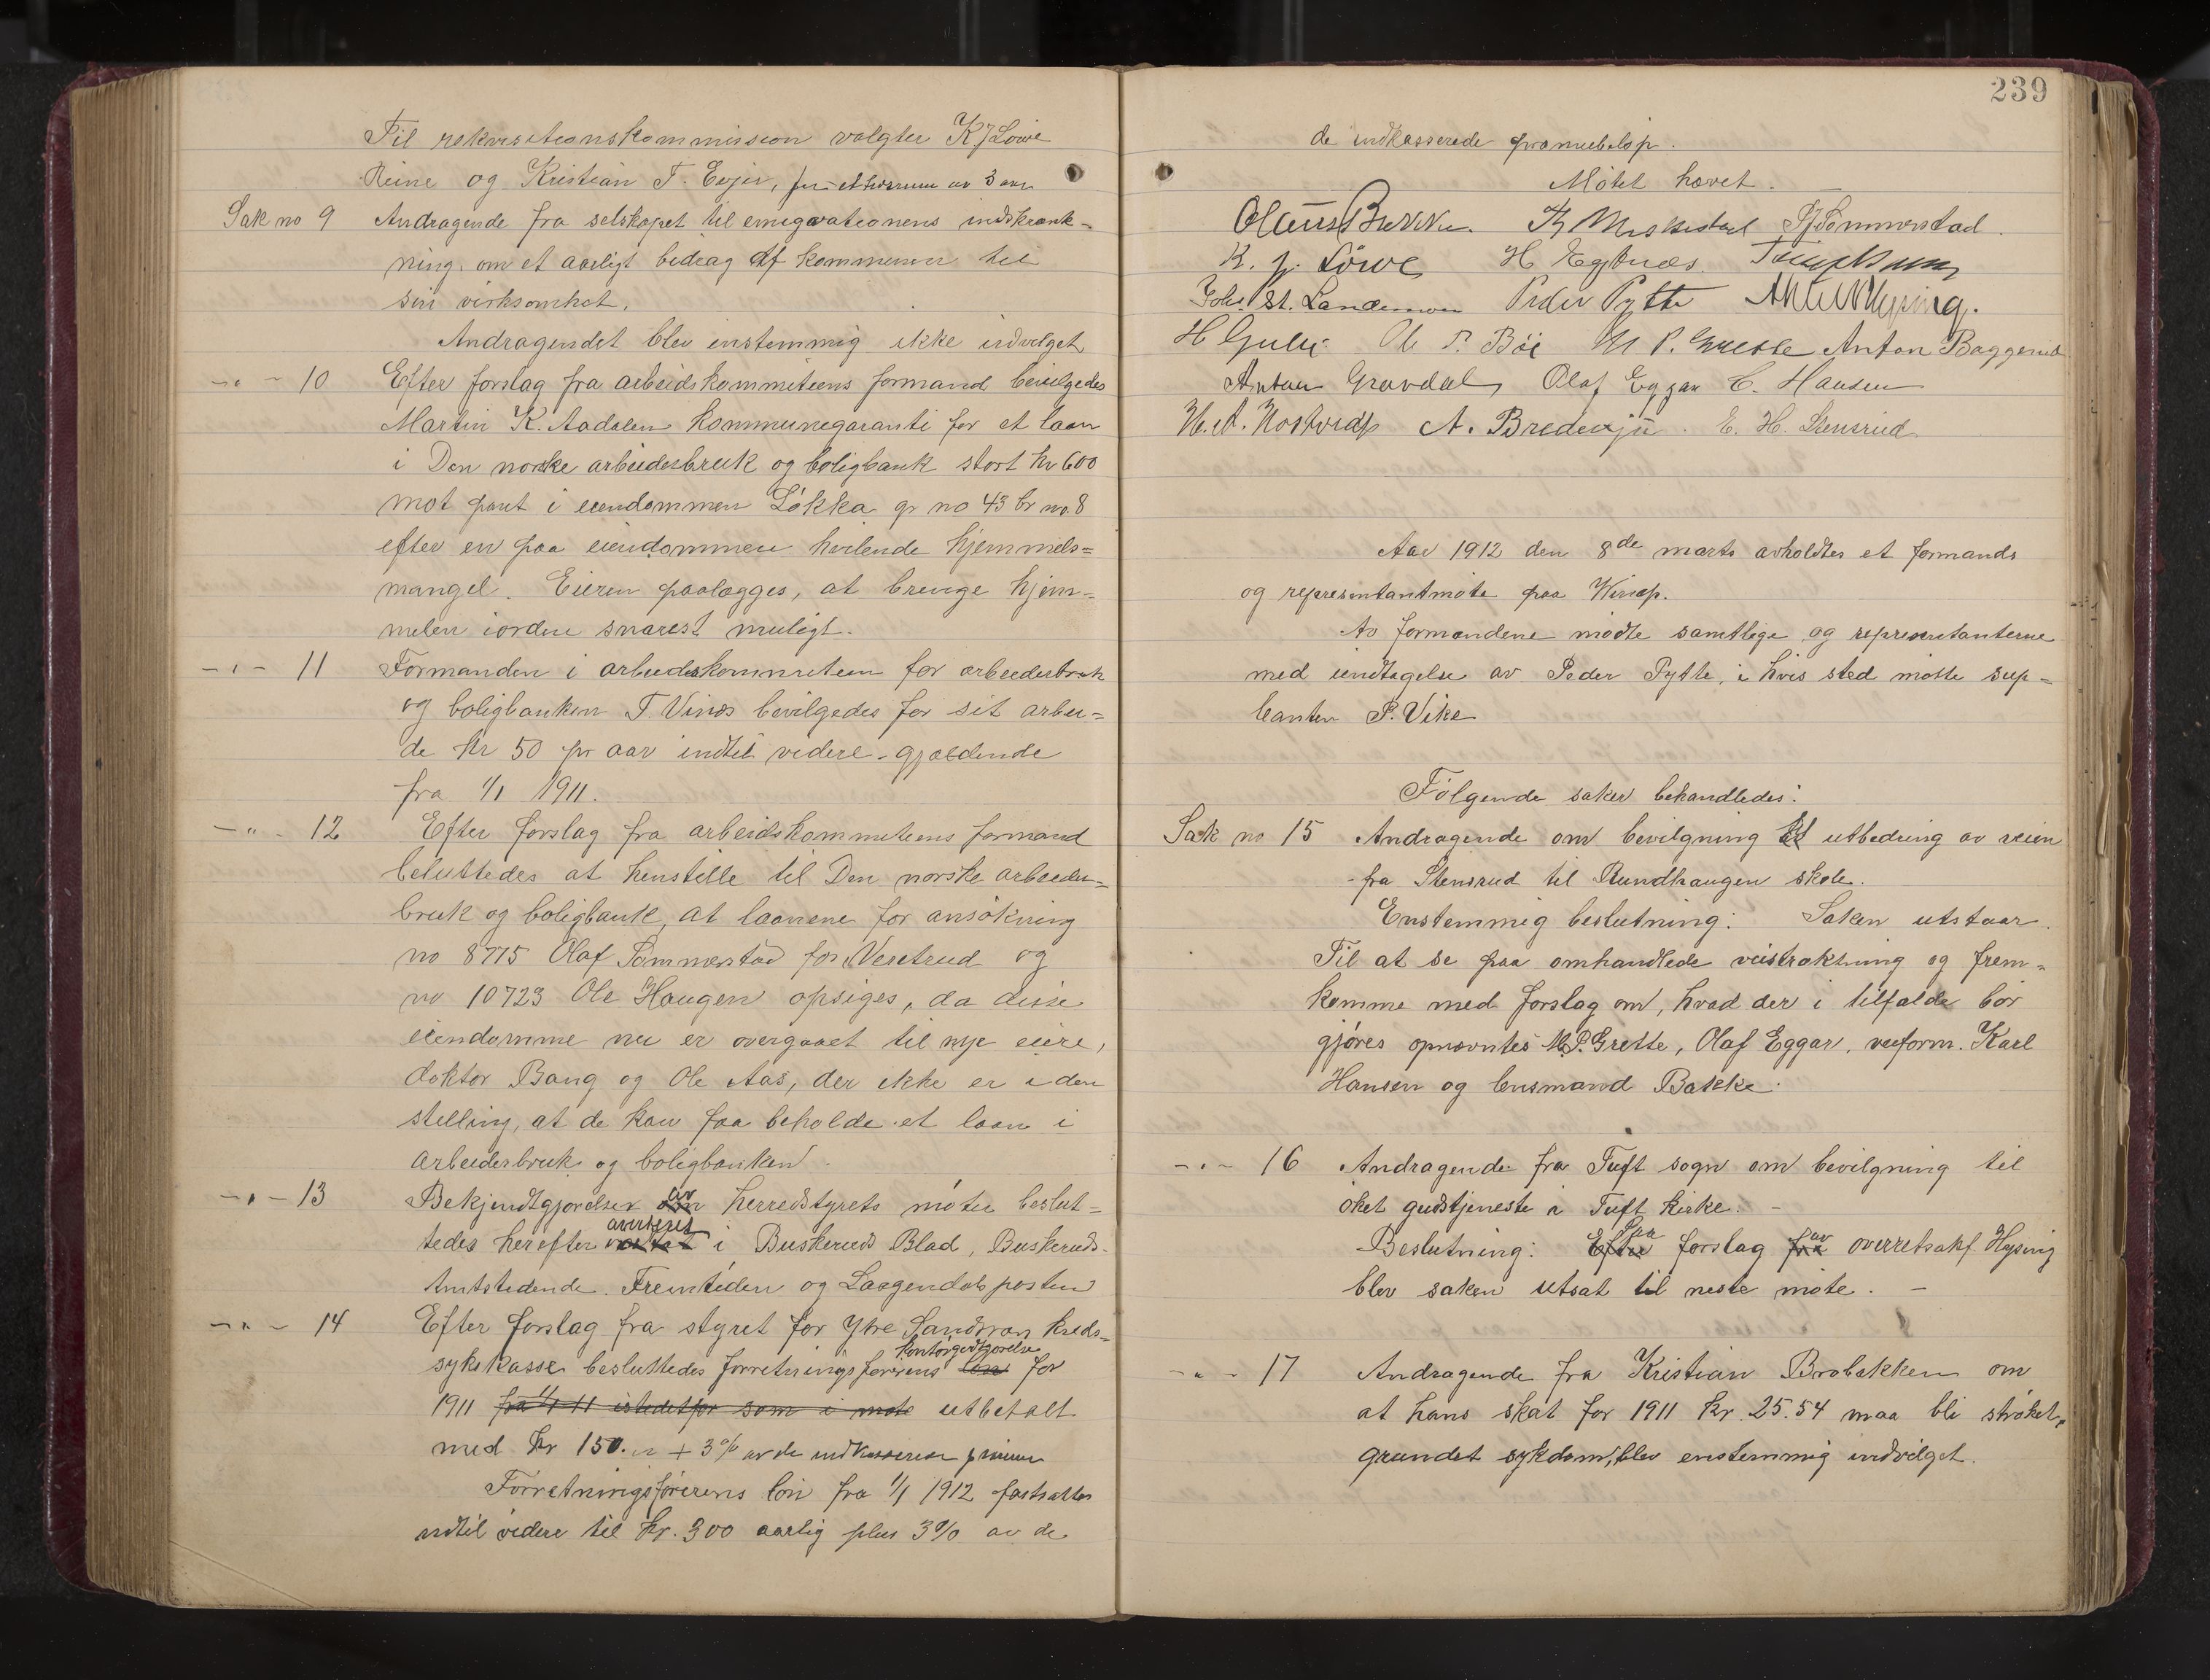 Til rekvisitionskommission valgtes K J Löwe
Heine og Kristian T. Evju, for et tidsrum av 3 aar
Sak no 9 Andragende fra selskapet til emigrationens indskrænk-
ning om et aarligt bidrag af kommunen til
sin virksomhet.
Andragendet blev enstemmig ikke indvilget
—"— 10 Efter forslag fra arbeidskommiteens formand bevilgedes
Martin K. Aadalen kommunegaranti for et laan
i Den norske arbeiderbruk og boligbank stort kr 600
mot pant i eiendommen Løkka gr no 43 br no. 8
efter en paa eiendommen hvilende hjemmels=
mangel. Eieren paalægges, at bringe hjem=
melen iorden snarest muligt.
—"— 11 Formanden i arbeidskommiteen for arbeiderbruk
og boligbanken T. Vinæs bevilgedes for sit arbei=
de kr 50 pr aar indtil videre - gjældende
fra 1/1 1911.
—"— 12 Efter forslag fra arbeidskommiteens formand
besluttedes at henstille til Den norske arbeider=
bruk og boligbank, at laanene for ansökning
no 8775 Olaf Sommerstad for Veretrud og
no 10723 Ole Haugen opsiges, da disse
eiendomme nu er overgaaet til nye eiere,
doktor Bang og Ole Aas, der ikke er i den
stilling, at de kan faa beholde et laan i
arbeiderbruk og boligbanken.
—"— 13 Bekjendtgjørelser av herredstyrets møter beslut=
tedes herefter averteres i Buskeruds Blad, Buskeruds
Amtstidende. Fremtiden og Laagendalsposten
—"— 14 Efter forslag fra styret for Ytre Sandsvær kreds=
sykekasse besluttedes forretningsførerens kontorgodtgjørelse løn for
1911 fra 1/1 11 istedetfor som i møte utbetalt
med kr 150.- + 3% av de indkasserede præmier
Forretningsførerens løn fra 1/1 1912 fastsattes
indtil videre til kr. 300 aarlig plus 3% av de
239
de indkasserede præmiebeløp.
Møtet hævet.
Olaus Bakke. S Sommerstad.
K. J. Löwe H Egtvæs.
Joh. St. Landemoen Peder Pytte Hysing.
H Gulli Ole P. Böe M P. Grette Anton Baggerud
Anton Gravdal, Olaf Eggar C. Hansen
H. A. A. Bredevju. E. H. Stensrud.
Aar 1912 den 8de marts avholdtes et formands
og representantmøte paa Winæp.
Av formændene mødte samtlige og representanterne
med undtagelse av Peder Pytte, i hvis sted møtte sup=
leanten P. Vike
Følgende saker behandledes:
Sak no 15 Andragende om bevilgning til utbedring av veien
fra Stensrud til Rundhaugen skole.
Enstemmig beslutning: Saken utstaar.
Til at se paa omhandlede veistrækning og frem=
komme med forslag om, hvad der i tilfælde bør
gjøres opnævntes M.P. Grette, Olaf Eggar, veiform. Karl
Hansen og lensmand Bakke.
—"— 16 Andragende fra Tuft sogn om bevilgning til
øket gudstjeneste i Tuft kirke. —
Beslutning: Efter Paa forslag fra av overretsakf. Hysing
blev saken utsat til næste møte. —
—"— 17 Andragende fra Kristian Brobakken om
at hans skat for 1911 kr. 25.54 maa bli strøket,
grundet sykdom, blev enstemmig indvilget.